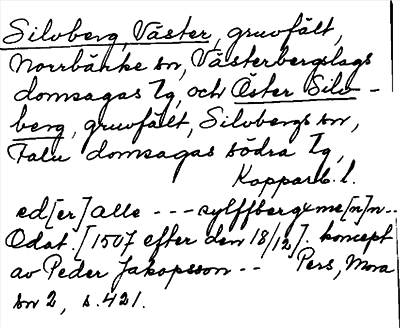 Silvberg, Väster, gruvfält,
Norrbärke sn, Västerbergslags
domsagas tg, och Öster Silv-
berg, gruvfält, Silvbergs sn,
Falu domsagas södra tg,
Kopparb. l.
ed[er] alle --- sylffbergxme[n]n--
Odat. [1507 efter den 18/12]. koncept
av Peder Jakopsson -- Pers, Mora
sn 2, s. 421.